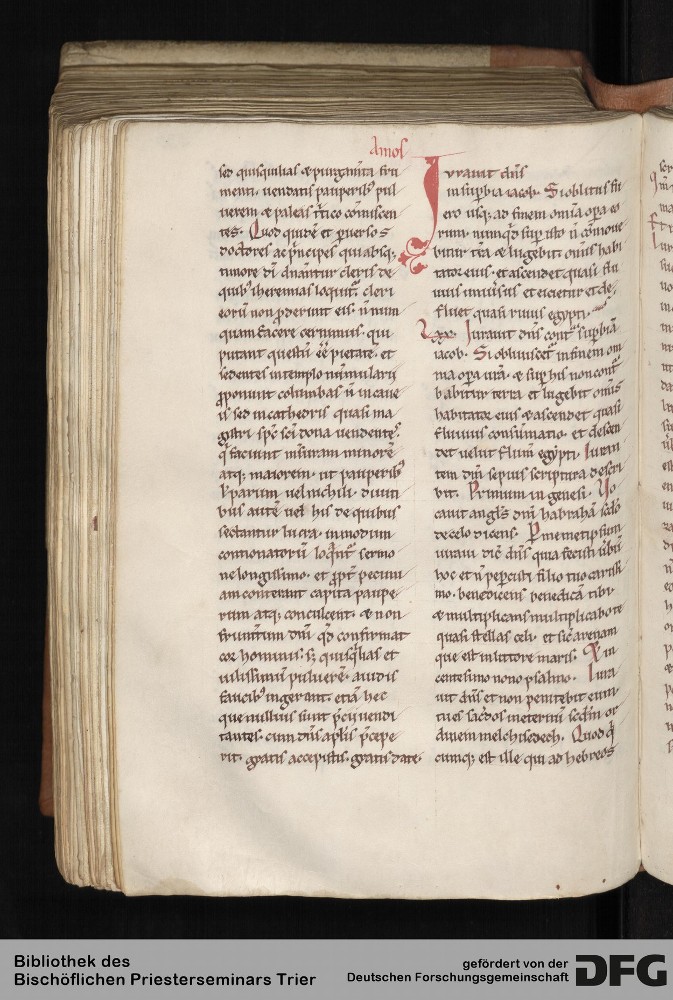 Amos
sed quisquilias & purgam̄ta fru
menti. uendatis pauperib; pul
uerem & paleas t̄tico cōmiscen
tes. Quod quidē et ꝑuersos
doctores ac p̄ncipes qui absq;
timore dī dn̄antur cleris de
quib; iheremias loquit̄. cleri
eorū non ꝓderunt eis. ū num
quam facere cernimus. qui
putant questū eē pietatē. et
sedentes in templo nūmularii
ꝓponunt columbas ū in caue
is sed in cathedris quasi ma
gistri. sp̄c sc̄i dona uendentes.
q̄ faciunt m̄suram minorē
atq; maiorem. ut pauperib;
ł parum uel nichili. diuiti
bus autē uel his de quibus
sectantur lucra. in modum
contionatorū loq̄nt̄ sermo
ne longissimo. et ꝓpt̄ pecuni
am conterant capita paupe
rum atq; conculcent. & non
frum̄tum dn̄i q̄d confirmat
cor hominis. s; quisq̄lias et
uilissimū puluerē. auidis
faucib; ingerant. etiā hec
que nullius sunt p̄cii uendi
tantes. cum dn̄s ap̄lis p̄cepe
rit. gratis accepistis. gratis date.
Iurauit dn̄s
in suꝑbia iacob. Si oblitus fu
ero usq; ad finem omīa oꝑa eo
rum. numq̄d suꝑ isto ū cōmoue
bitur t̄ra & lugebit omīs habi
tator eius. et ascendet quasi flu
uius uniu̇sus et eicietur et de
fluet quasi riuus egypti.
Lxx. Iurauit dn̄s cont̄ suꝑbiā
iacob. Si obliuiscet̄ in finem om
nia oꝑa ūra. & suꝑ his non cont̄
babitur terra et lugebit omīs
habitator eius & ascendet quasi
fluuius consūmatio. et descen
det uelut flumē egypti. Iuran
tem dn̄m sepius scriptura descri
bit. Primum in genesi. Uo
cauit angl̄s dn̄i habrahā sc̄do
de celo dicens. Per memetipsum
iuraui dic̄ dn̄s quia fecisti ūbū
hoc et ū peꝑcisti filio tuo carissi
mo. benedicens benedicā tibi.
& multiplicans multiplicabo te
quasi stellas celi. et sic̄ arenam
que est in littore maris. Et in
centesimo nono psalmo. Iura
uit dn̄s et non penitebit eum
tu es sac̄dos in eternū sc̄dm̄ or
dinem melchisedech. Quod q̄
cumq; est ille qui ad hebreos
Bibliothek des
Bischöflichen Priesterseminars Trier
gefördert von der
Deutschen Forschungsgemeinschaft
DFG